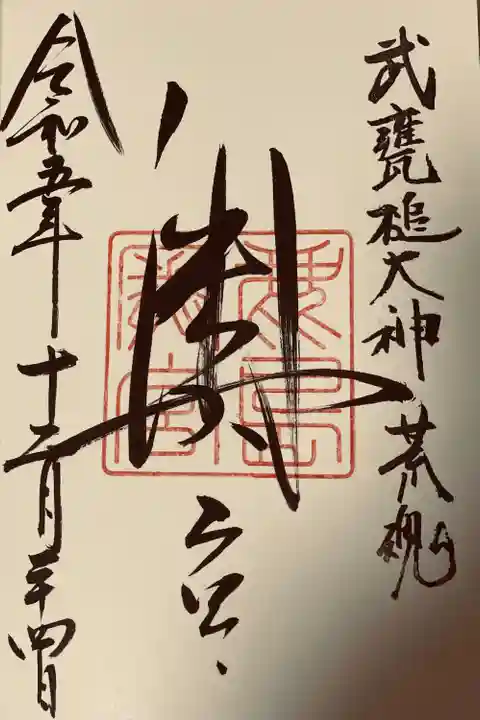 武甕槌大神 荒魂
奥宮
鹿島
奥宮
令和五年十二月二十四日